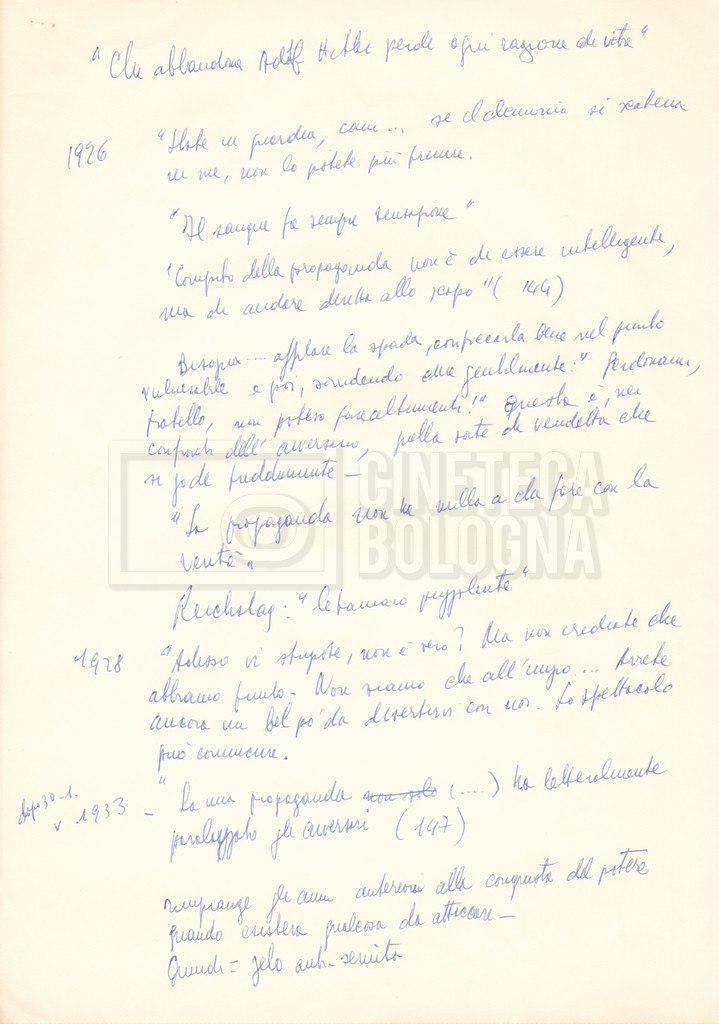 "Chi abbandona Adolf Hitler perde ogni ragione di vita"
1926
"State in guardia, cani... se il demonio si scatena
in me, non lo potete più frenare.
"Il sangue fa sempre sensazione"
"Compito della propaganda non è di essere intelligente,
ma di andare diretta allo scopo" (144)
Bisogna... affilare la spada, conficcarla bene nel punto
vulnerabile e poi, sorridendo dire gentilmente: "Perdonami,
fratello, non potevo fare altrimenti!" Questa è, nei
confronti dell'avversario, quella sorta di vendetta che
si gode freddamente -
CINETECA
BOLOGNA
"La propaganda non ha nulla a che fare con la
verità"
Reichstag: "letamaio puzzolente"
1928
"Adesso vi stupite, non è vero? Ma non crediate che
abbiamo finito - Non siamo che all'inizio... Avrete
ancora un bel po' da divertirvi con noi. Lo spettacolo
può cominciare.
dopo 30-1.
1933 - "La mia propaganda non solo (....) ha letteralmente
paralizzato gli avversari (147)
rimpiange gli anni anteriori alla conquista del potere
quando esisteva qualcosa da attaccare -
Quindi = zelo anti-semita